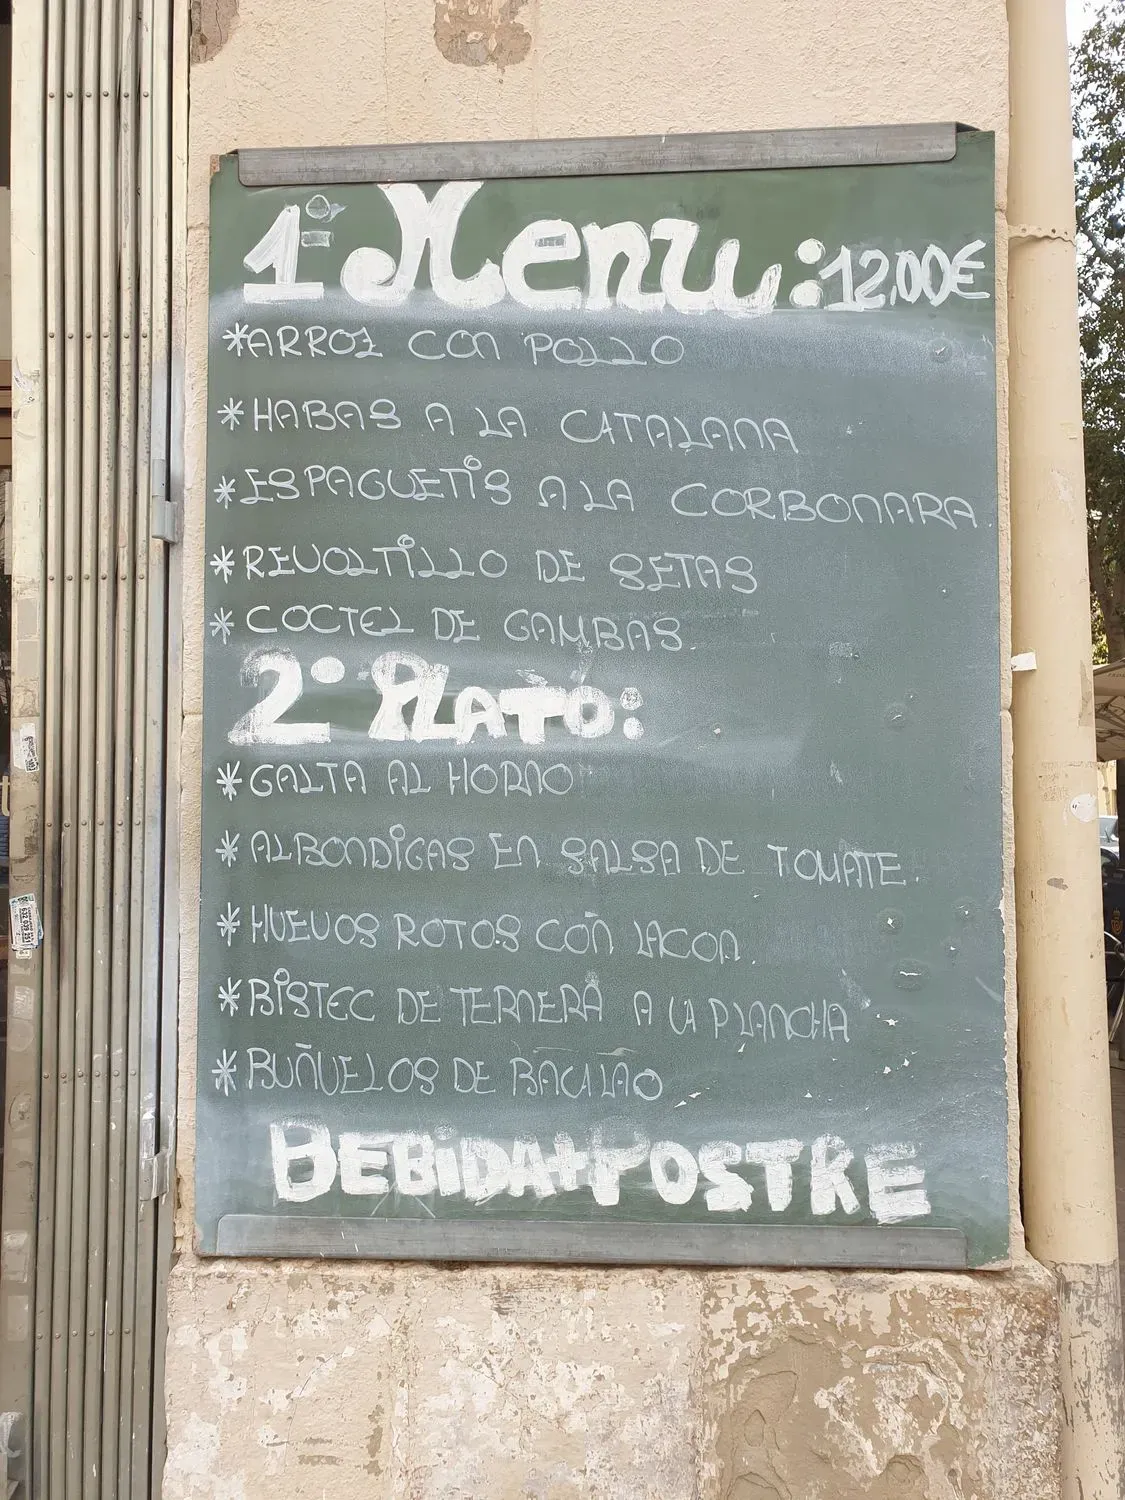 1º Menu: 12,00€
*ARROZ CON POLLO
*HABAS A LA CATALANA
*ESPAGUETIS A LA CORBONARA.
*REVOLTILLO DE SETAS
*COCTEL DE GAMBAS.
2º PLATO:
*GALTA AL HORNO
*ALBONDIGAS EN SALSA DE TOMATE.
*HUEVOS ROTOS CON LACON.
*BISTEC DE TERNERA A LA PLANCHA
*BUÑUELOS DE BACALAO
BEBIDA+POSTRE